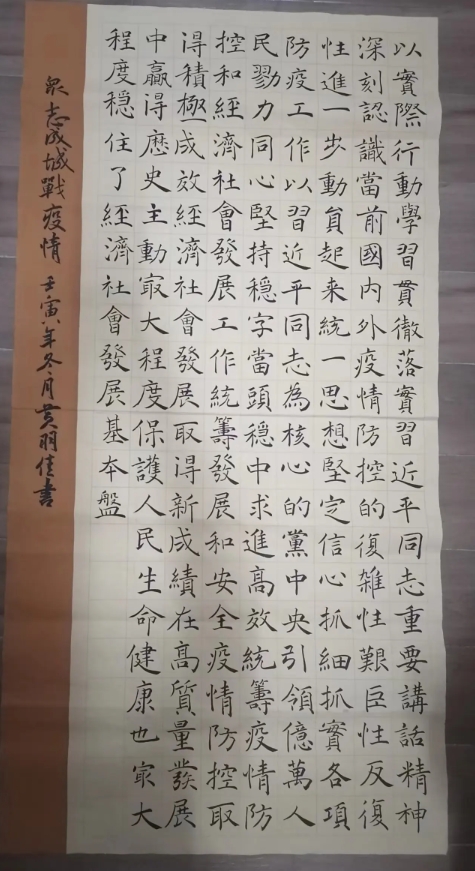 以實際行動學習貫徹落實習近平同志重要講話精神
深刻認識當前國內外疫情防控的復雜性艱臣性反復
性進一步動員起來統一思想堅定信心抓細抓實各項
防疫工作以習近平同志為核心的黨中央引領億萬人
民勠力同心堅持穩字當頭穩中求進高效統籌疫情防
控和經濟社會發展工作統籌發展和安全疫情防控取
得積極成效經濟社會發展取得新成績在高質量發展
中贏得歷史主動最大程度保護人民生命健康也最大
程度穩住了經濟社會發展基本盤
眾志成城戰疫情 壬寅年冬月黄佳書